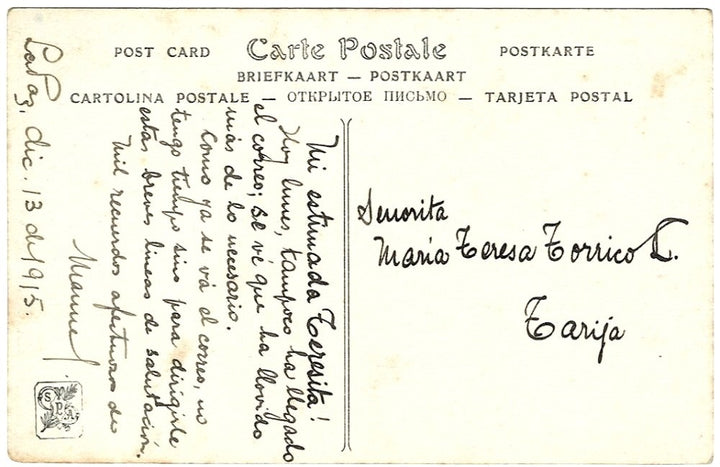 POST CARD Carte Postale POSTKARTE
BRIEFKAART — POSTKAART
CARTOLINA POSTALE — ОТКРЫТОЕ ПИСЬМО — TARJETA POSTAL
La Paz, dic. 13 de 1915.
Mi estimada Teresita!
Hoy lunes, tampoco ha llegado
el correo; se vé que ha llovido
más de lo necesario.
Como ya se vá el correo, no
tengo tiempo sino para dirigirle
estas breves lineas de salutación.
Mil recuerdos afectuosos de
Manuel
Senorita
María Teresa Torrico L.
Tarija
SPA